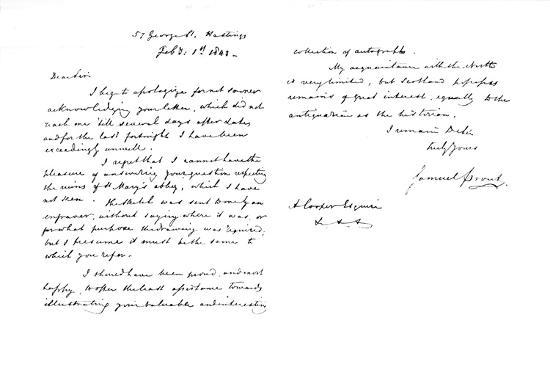 57 George St. Hastings
Feby. 1st 1841.
Dear Sir
I beg to apologize for not sooner
acknowledging your letter, which did not
reach me 'till several days after date,
and for the last fortnight I have been
exceedingly unwell.
I regret that I cannot have the
pleasure of answering your question respecting
the ruins of St Mary's abbey, which I have
not seen. The sketch was sent to me by an
engraver, without saying where it was or
for what purpose the drawing was required,
but I presume it must be the same to
which you refer.
I should have been proud, and most
happy, to offer the least assistance towards
illustrating your valuable and interesting
collection of autographs.
My acquaintance with the North
is very limited, but Scotland possesses
remains of great interest, equally to the
antiquarian as the historian.
I remain Dr Sir
truly yours
Samuel Prout.
A Cooper Esquire